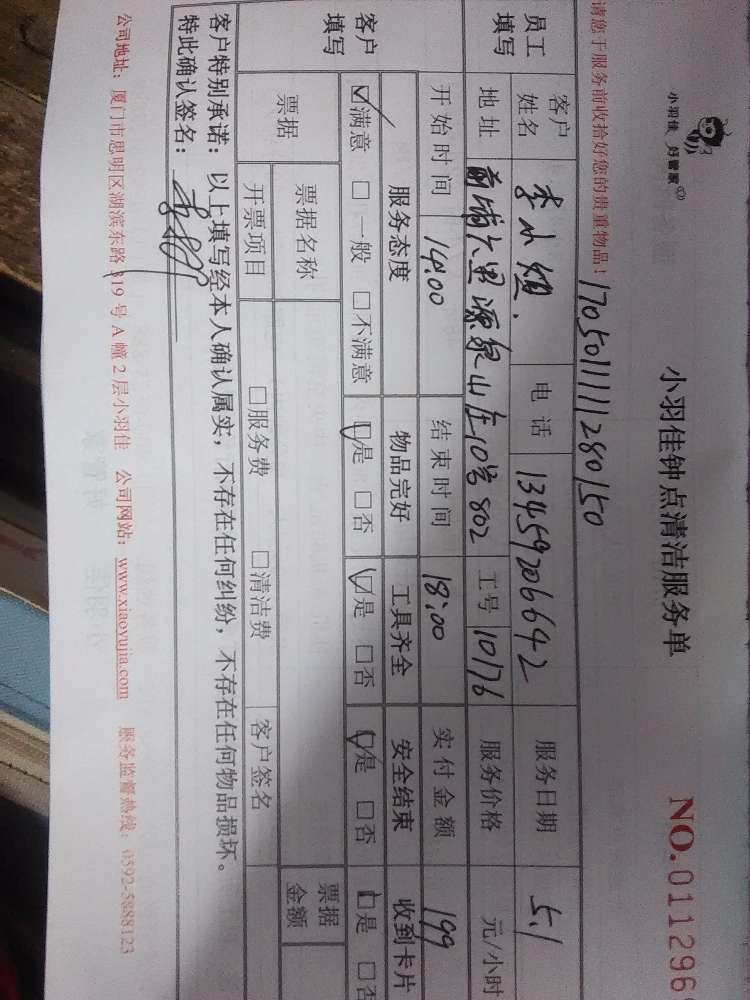 小羽佳 好管家
小羽佳钟点清洁服务单
NO.011296
请您于服务前收拾好您的贵重物品！
170501111280150
员工填写 客户姓名 李小 电话 13459206642 服务日期 5.1
地址 前埔 源泉山庄10号802 工号 10176 服务价格 元/小时
开始时间 14:00 结束时间 18:00 实付金额 199
客户填写 服务态度 物品完好 工具齐全 安全结束 收到卡片
☑满意 □一般 □不满意 ☑是 □否 ☑是 □否 ☑是 □否 □是 □否
票据 票据名称 票据金额
开票项目 □服务费 □清洁费 客户签名
客户特别承诺：以上填写经本人确认属实，不存在任何纠纷，不存在任何物品损坏。
特此确认签名：
公司地址：厦门市思明区湖滨东路 319 号 A 幢 2 层小羽佳 公司网站：www.xiaoyujia.com 服务监督热线：0592-5888123